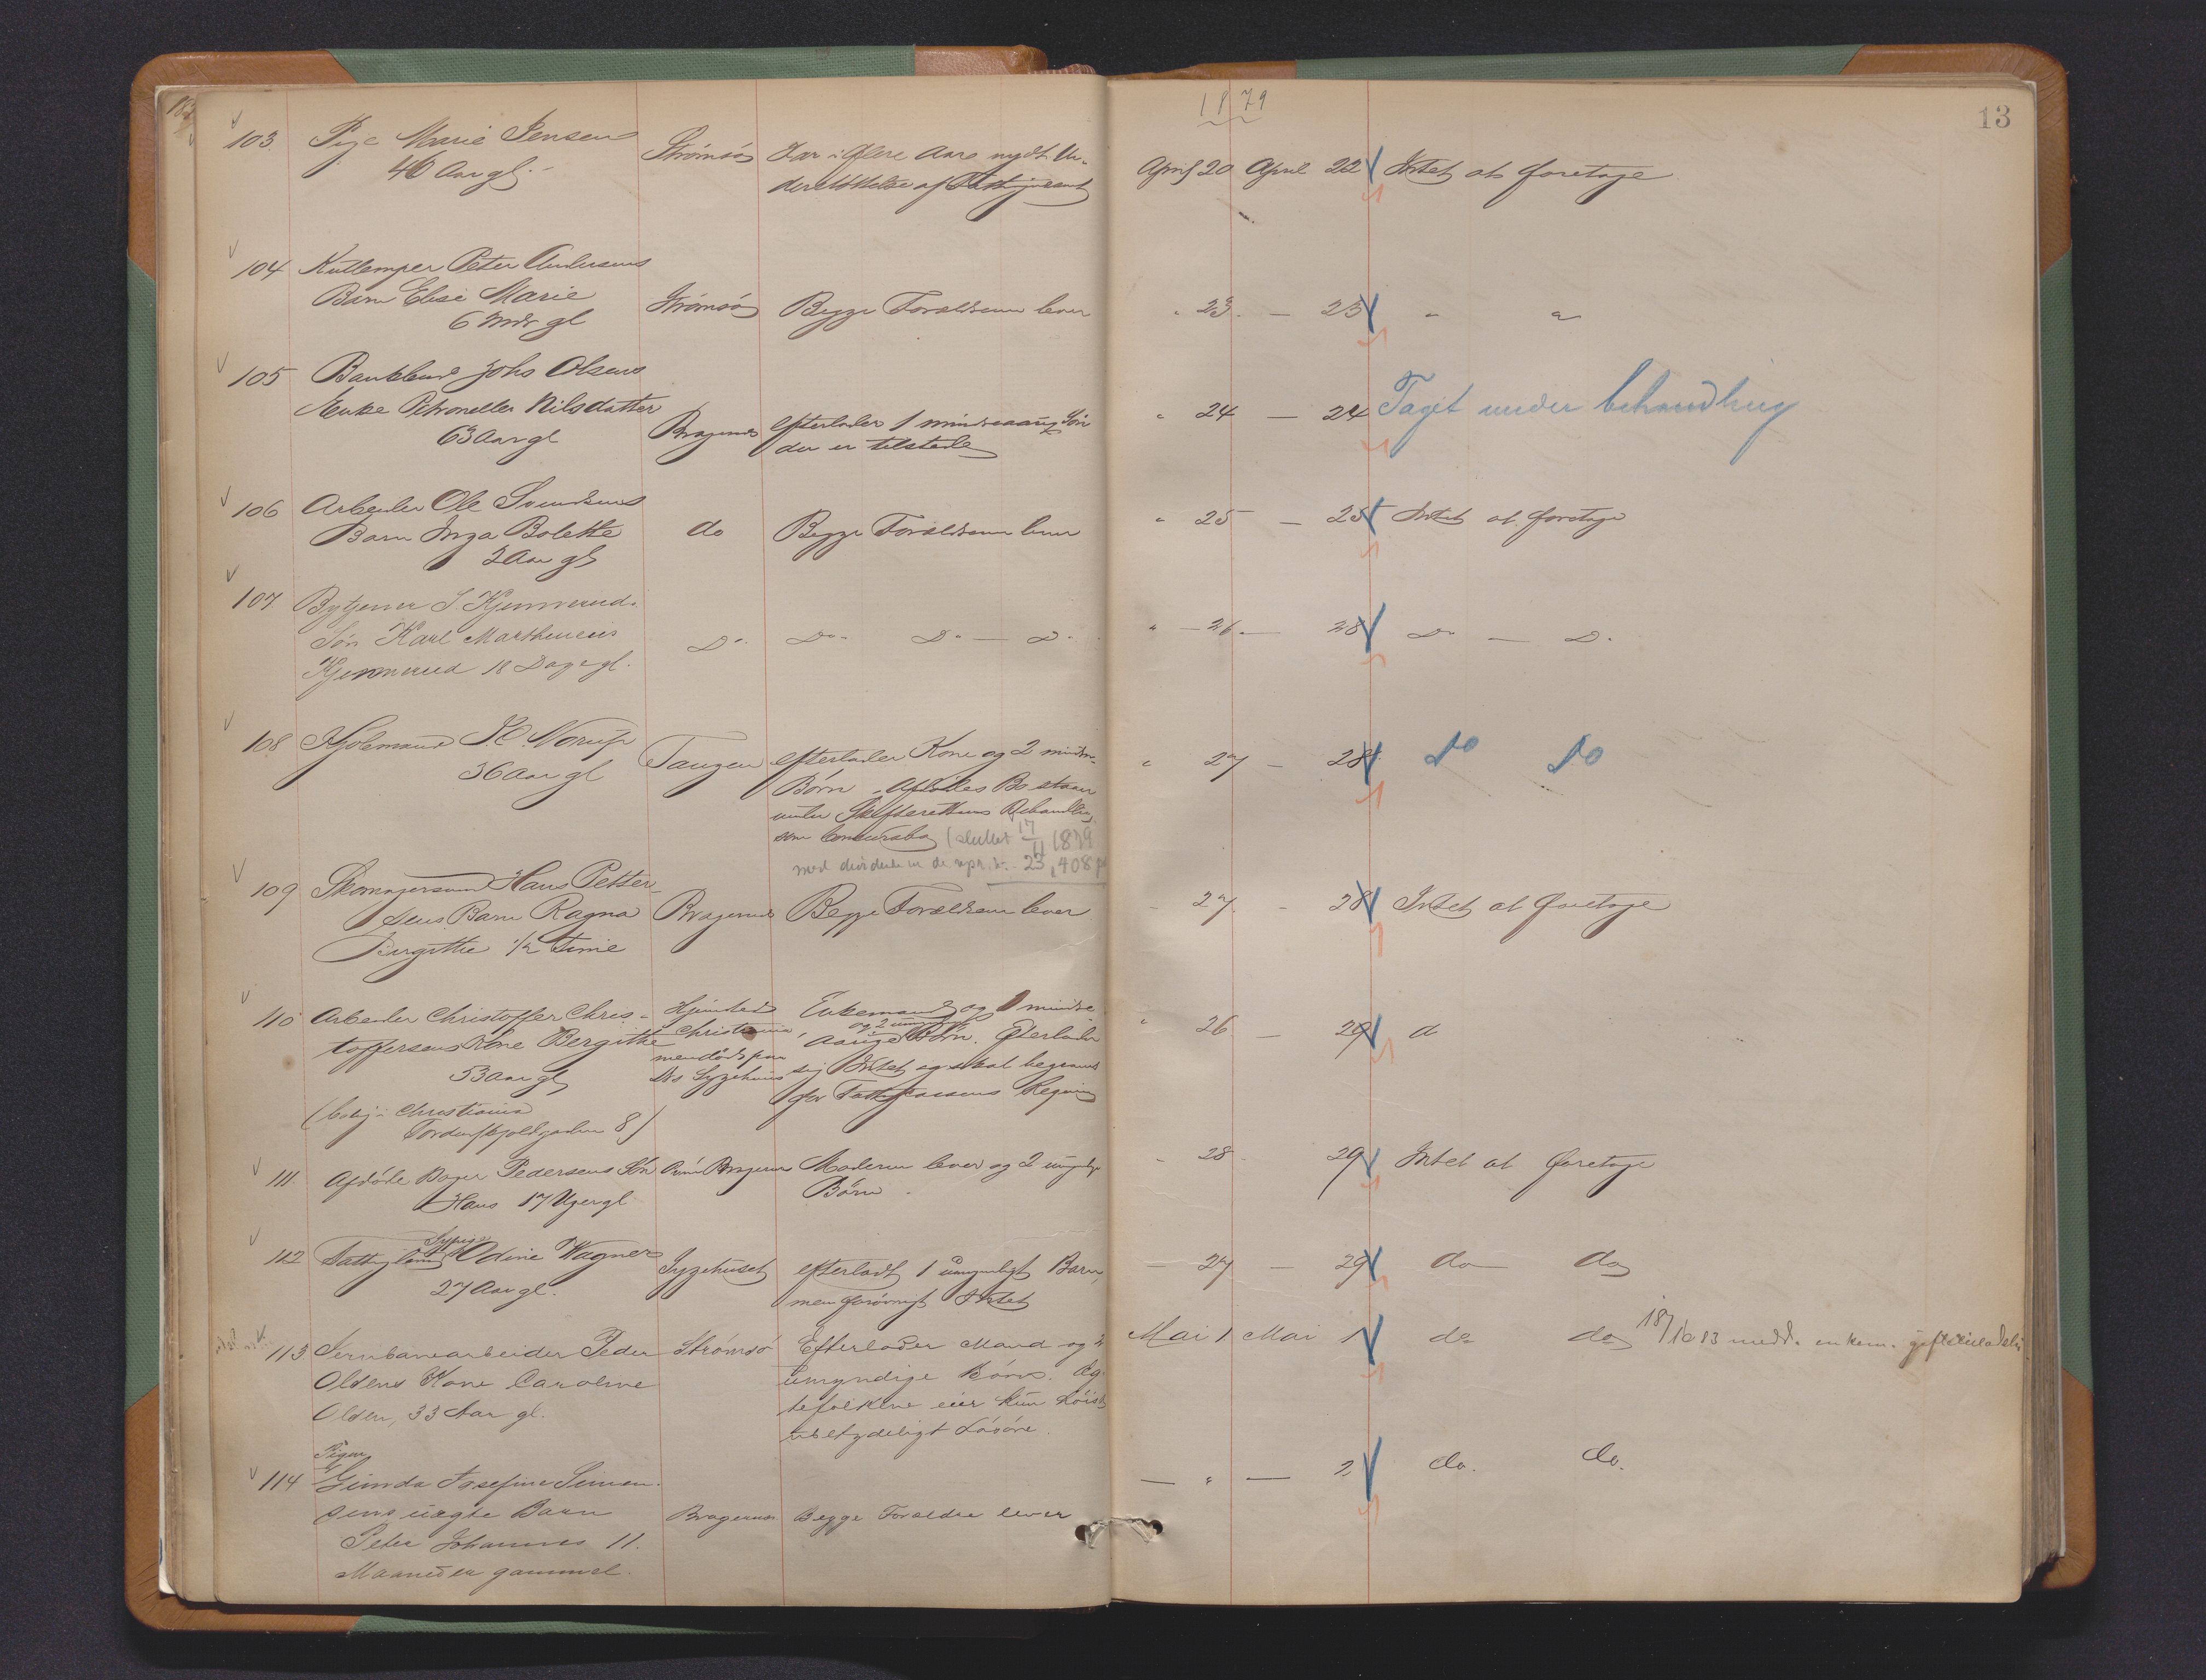 1879
13
103. Pige Marie Jensen
46 Aar gl.
Strømsø
Har i flere Aar nydt Un-
derstøttelse af
April 20 April 22 Intet at foretage
104 Peter Andersens
Barn Elise Marie
6 Mdr gl
Strømsø
Begge Forældrene lever
" 23. — 23 " "
105 Johs Olsens
Enke Nilsdatter
63 Aar gl
Bragernes
efterlader 1 mindreaarig Søn
der er tilstede
" 24 — 24 Taget under behandling
106 Arbeider Ole Svendsens
Barn Inga Bolette
2 Aar gl
do
Begge Forældrene lever
" 25 — 25 Intet at foretage
107 Bytjener S. Kjennerud.
Søn Karl Marthinius
Kjennerud 18 Dage gl.
Do
Do Do — Do
" — 26 — 28 Do — Do
108 Norup
36 Aar gl
Tangen
efterlader Kone og 2 mindre
Børn. Afdødes Bo staar
under Skifterettens Behandling
som Concursbo (sluttet 17/11 1879
med dividende 23,408
" 27 — 28 Do Do
109 Skomagersvend Hans Petter-
sens Barn Ragna
Birgitte 1/2 Time
Bragernes
Begge Forældrene lever
- 27. - 28 Intet at foretage
110 Arbeider Christoffer Chris-
toffersens Kone Bergitte
53 Aar gl
(Christiania
Tordenskjoldgaden 8)
Hjemsted
Christiania,
men død paa
Ds Sygehuus
Enkemand og mindre
og 2 umyndige
aarige Børn. Efterlader
sig Intet og skal begraves
for Fattigcassens Regning
" 26 — 29 d
111 Afdøde Bager Pedersens Søn
Hans 17 Uger gl
Bragernes
Moderen lever og 2 umyndige
Børn.
- 28 - 29 Intet at foretage
112 Sypige
Odine Wagner
27 Aar gl.
Sygehuset
efterladt 1 umyndigt Barn,
men forøvrigt Intet
— 27 — 29 do do
113 Jernbanearbeider Peder
Olsens Kone Caroline
Olsen, 33 Aar gl.
Strømsø
Efterlader Mand og
umyndige Børn. Æg-
tefolkene eier kun høist
ubetydeligt Løsøre.
Mai 1 Mai 1 do do 18/10 83 medd. enkem.
114 Pigen
Gunda Josefine Simen-
sens uægte Barn
Peter Johannes 11.
Maaneder gammel.
Bragernes
Begge Forældre lever
— " — 2 do. do.